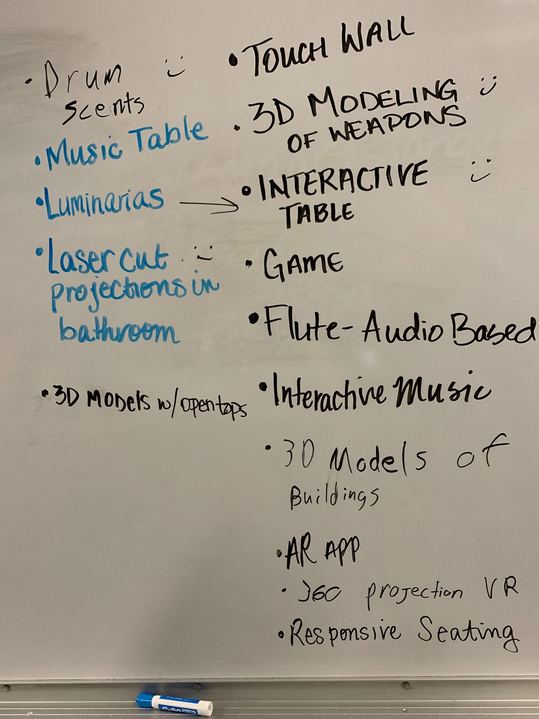 • Drum
scents
• Music Table
• Luminarias
• Laser cut
projections in
bathroom
• 3D Models w/open tops
• TOUCH WALL
• 3D MODELING
OF WEAPONS
• INTERACTIVE
TABLE
• GAME
• Flute-Audio Based
• Interactive Music
• 3D Models of
Buildings
• AR APP
• 360 projection VR
• Responsive Seating